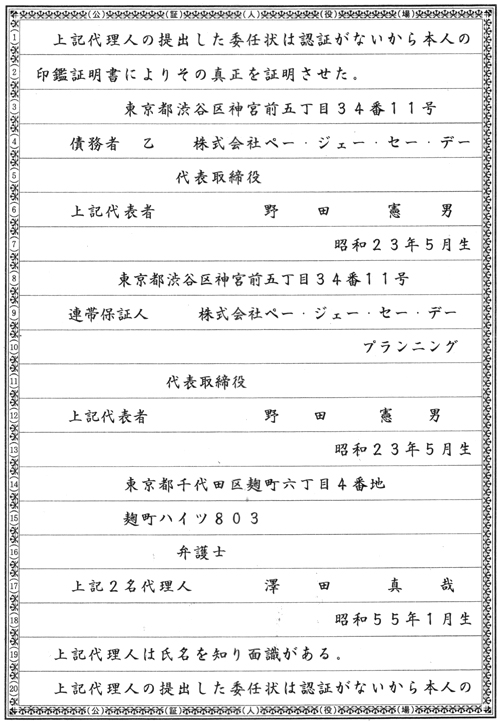 (公)(証)(人)(役)(場)
① 上記代理人の提出した委任状は認証がないから本人の
② 印鑑証明書によりその真正を証明させた。
③ 東京都渋谷区神宮前五丁目34番11号
④ 債務者 乙 株式会社ペー・ジェー・セー・デー
⑤ 代表取締役
⑥ 上記代表者 野田憲男
⑦ 昭和23年5月生
⑧ 東京都渋谷区神宮前五丁目34番11号
⑨ 連帯保証人 株式会社ペー・ジェー・セー・デー
⑩ プランニング
⑪ 代表取締役
⑫ 上記代表者 野田憲男
⑬ 昭和23年5月生
⑭ 東京都千代田区麹町六丁目4番地
⑮ 麹町ハイツ803
⑯ 弁護士
⑰ 上記2名代理人 澤田真哉
⑱ 昭和55年1月生
⑲ 上記代理人は氏名を知り面識がある。
⑳ 上記代理人の提出した委任状は認証がないから本人の
(公)(証)(人)(役)(場)